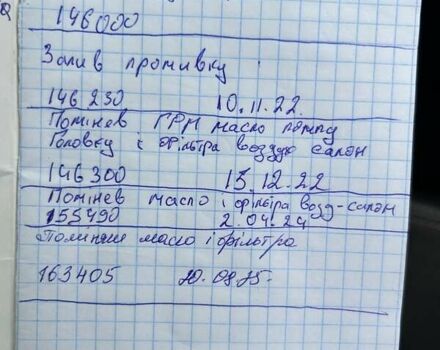 146000
Залив промивку
146 230 10.11.22
Помінев ГРМ масло помпу
Головку і фільтра воздух салон
146300 15.12.22
Помінев масло і фільтра возд-салон
155490 2.04.24
Поминяв масло і фільтра
163405 20.09.25